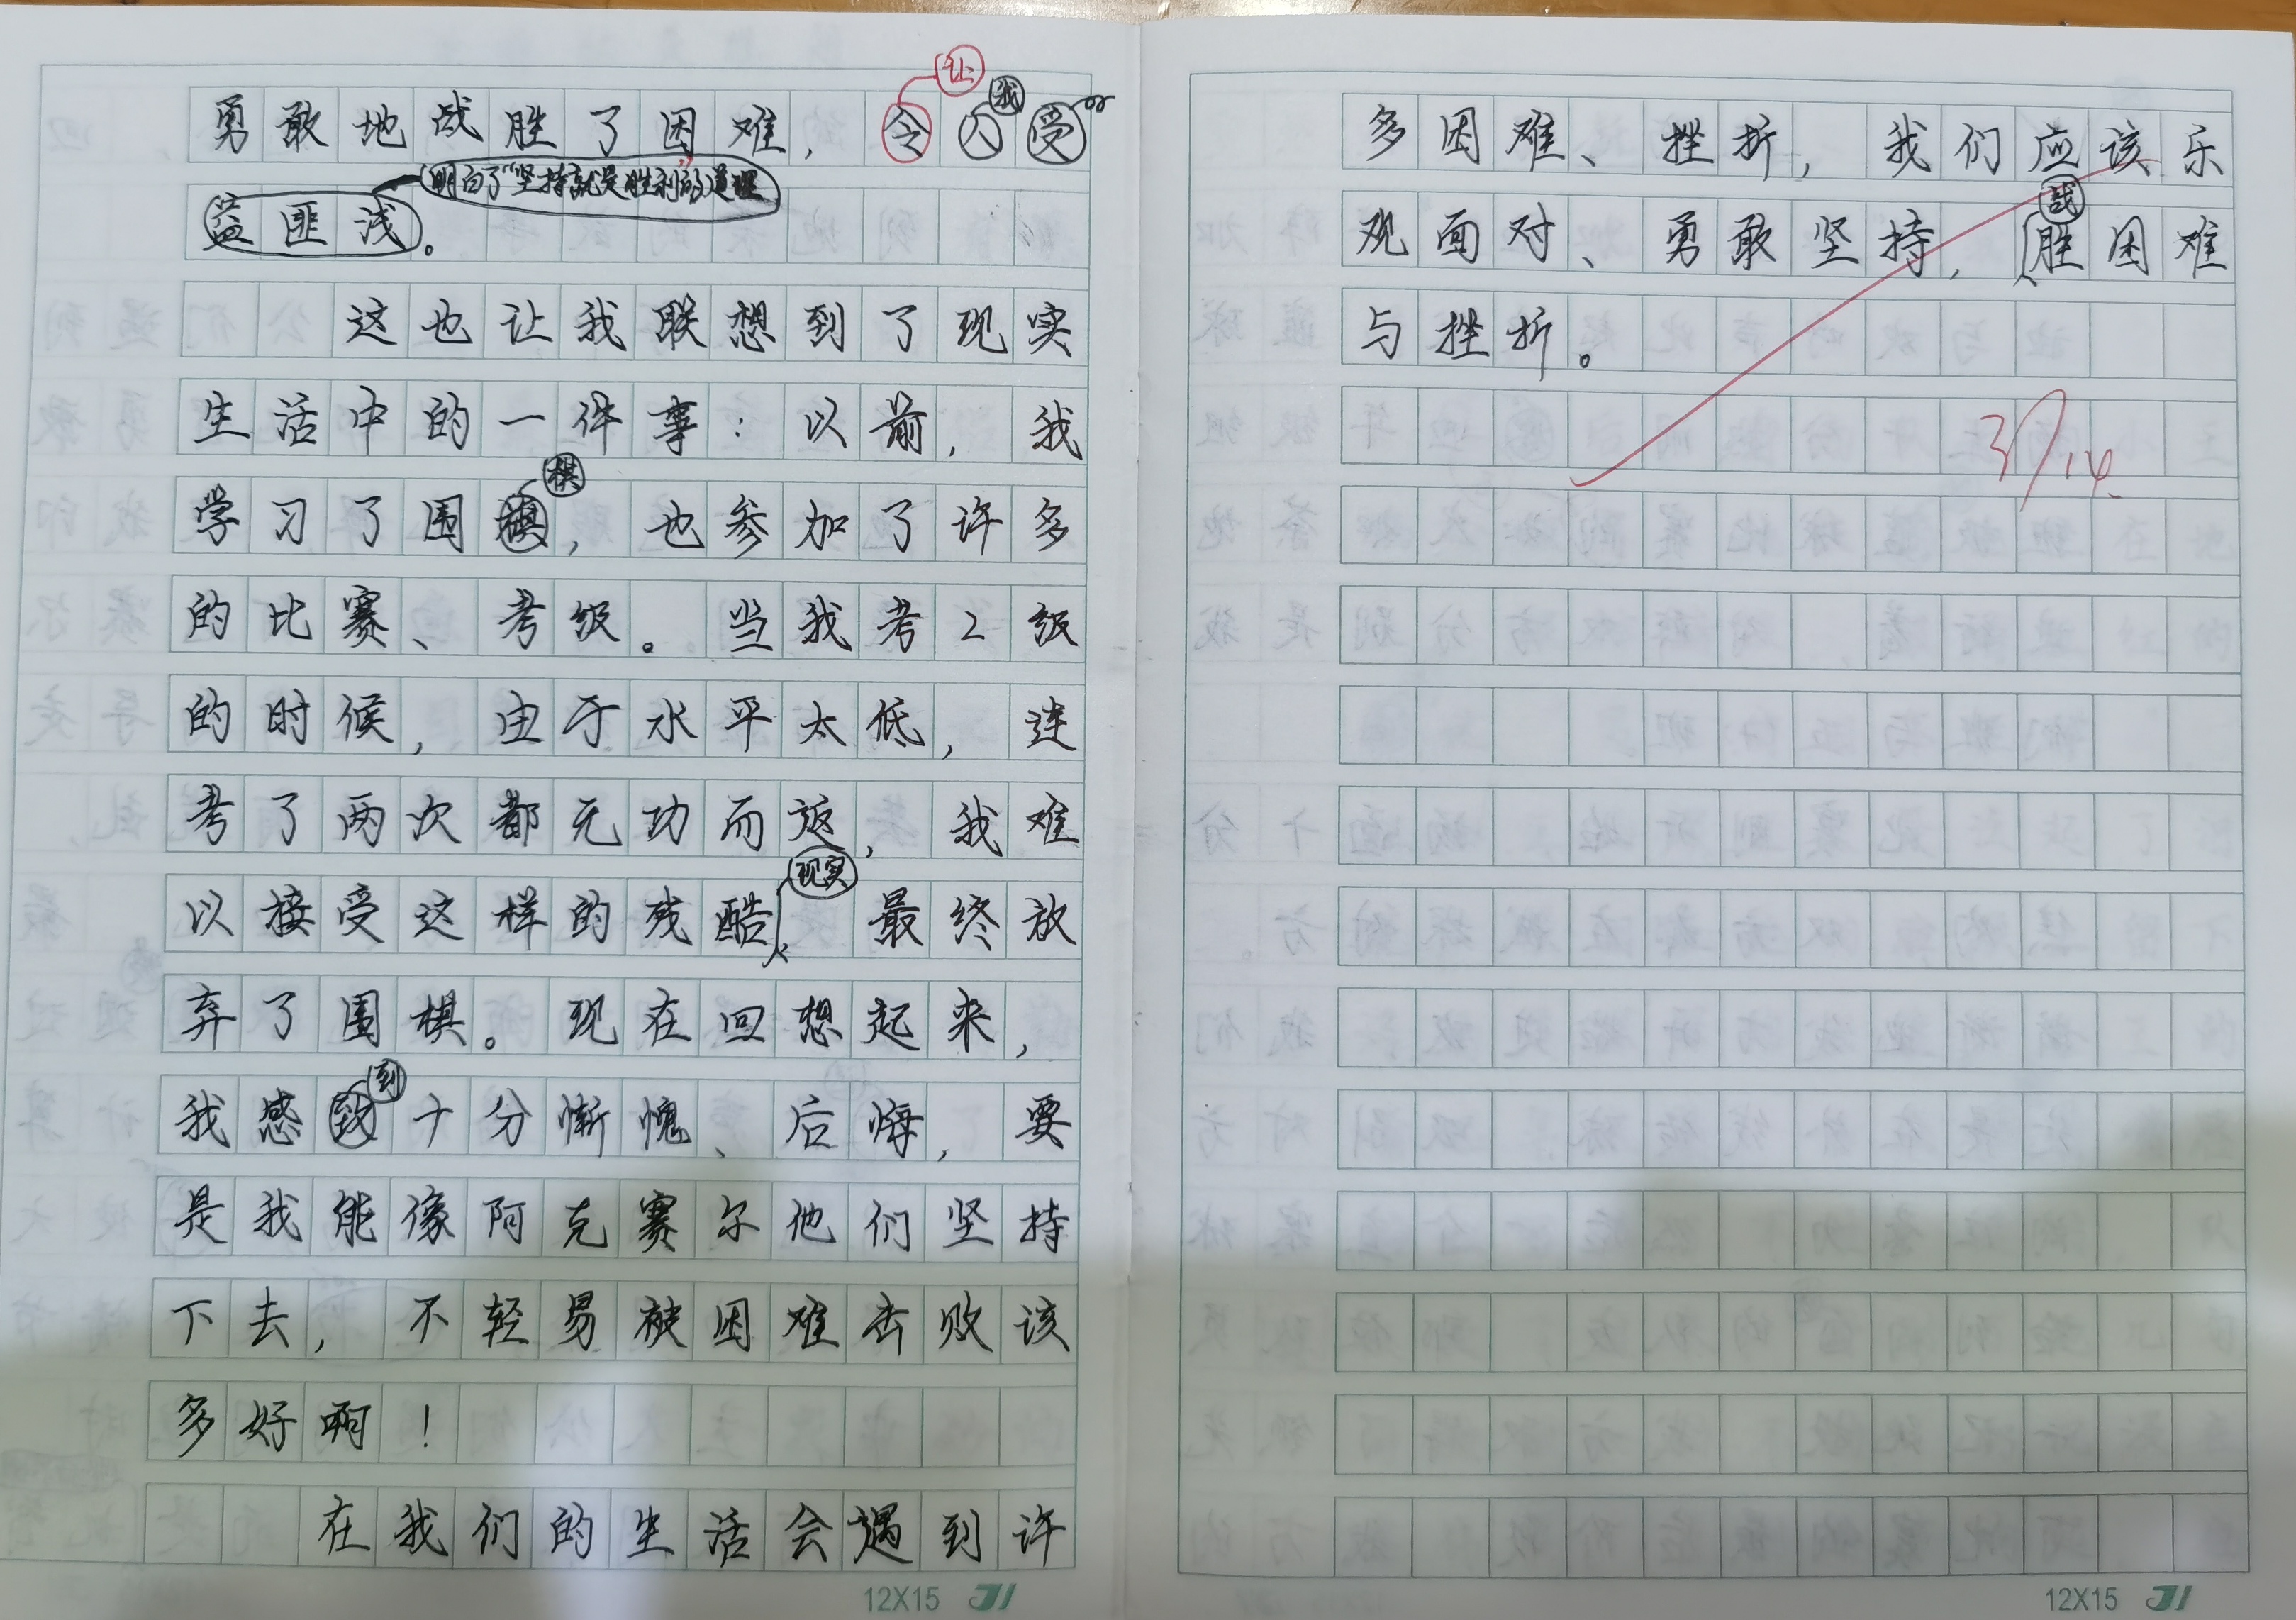 让
我
勇敢地战胜了困难，令人受
明白了“坚持就是胜利的道理
益匪浅。
这也让我联想到了现实
生活中的一件事：以前，我
棋
学习了围棋，也参加了许多
的比赛、考级。当我考2级
的时候，由于水平太低，连
考了两次都无功而返，我难
现实
以接受这样的残酷，最终放
弃了围棋。现在回想起来，
到
我感致十分惭愧、后悔，要
是我能像阿克赛尔他们坚持
下去，不轻易被困难击败该
多好啊！
在我们的生活会遇到许
12X15
多困难、挫折，我们应该乐
战
观面对、勇敢坚持，胜困难
与挫折。
12X15